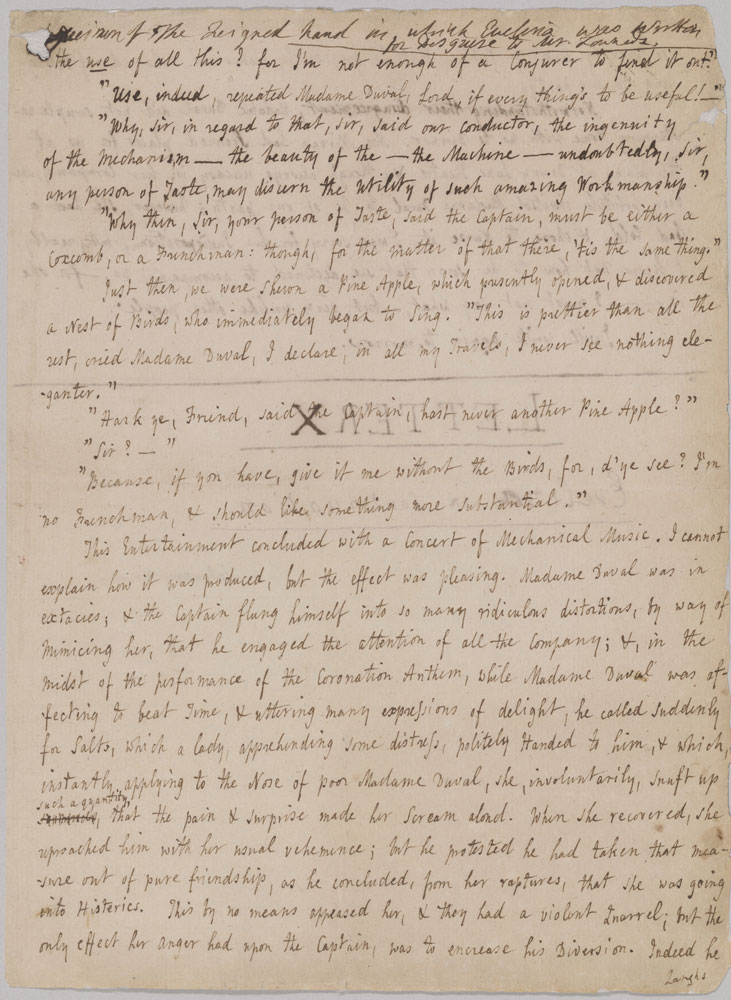 Specimen of the Feigned hand in which Evelina was written
for disguise to Mr. Lowndes.
the use of all this? for I'm not enough of a Conjurer to find it out."
"Use, indeed, repeated Madame Duval, Lord, if every thing's to be useful!—"
"Why, Sir, in regard to that, Sir, said our Conductor, the ingenuity
of the Mechanism — the beauty of the — the Machine — undoubtedly, Sir,
any person of Taste, may discern the utility of such amazing Workmanship."
"Why then, Sir, your person of Taste, said the Captain, must be either a
Coxcomb, or a Frenchman: though, for the matter of that there, 'tis the same thing."
Just then, we were shewn a Pine Apple, which presently opened, & discovered
a Nest of Birds, who immediately began to Sing. "This is prettier than all the
rest, cried Madame Duval, I declare, in all my Travels, I never see nothing ele-
-ganter."
"Hark ye, Friend, said the Captain, hast never another Pine Apple?"
"Sir? — "
"Because, if you have, give it me without the Birds, for, d'ye see? I'm
no Frenchman, & should like something more substantial."
This Entertainment concluded with a Concert of Mechanical Music. I cannot
explain how it was produced, but the effect was pleasing. Madame Duval was in
extacies; & the Captain flung himself into so many ridiculous distortions, by way of
mimicing her, that he engaged the attention of all the Company; &, in the
midst of the performance of the Coronation Anthem, while Madame Duval was af-
-fecting to beat Time, & uttering many expressions of delight, he called suddenly
for Salts, which a lady, apprehending some distress, politely Handed to him, & which,
instantly applying to the Nose of poor Madame Duval, she, involuntarily, snuft up
such a quantity,
that the pain & surprise made her Scream aloud. When she recovered, she
reproached him with her usual vehemence; but he protested he had taken that mea-
-sure out of pure friendship, as he concluded, from her raptures, that she was going
into Histerics. This by no means appeased her, & they had a violent Quarrel; but the
only effect her anger had upon the Captain, was to encrease his Diversion. Indeed he
Laughs